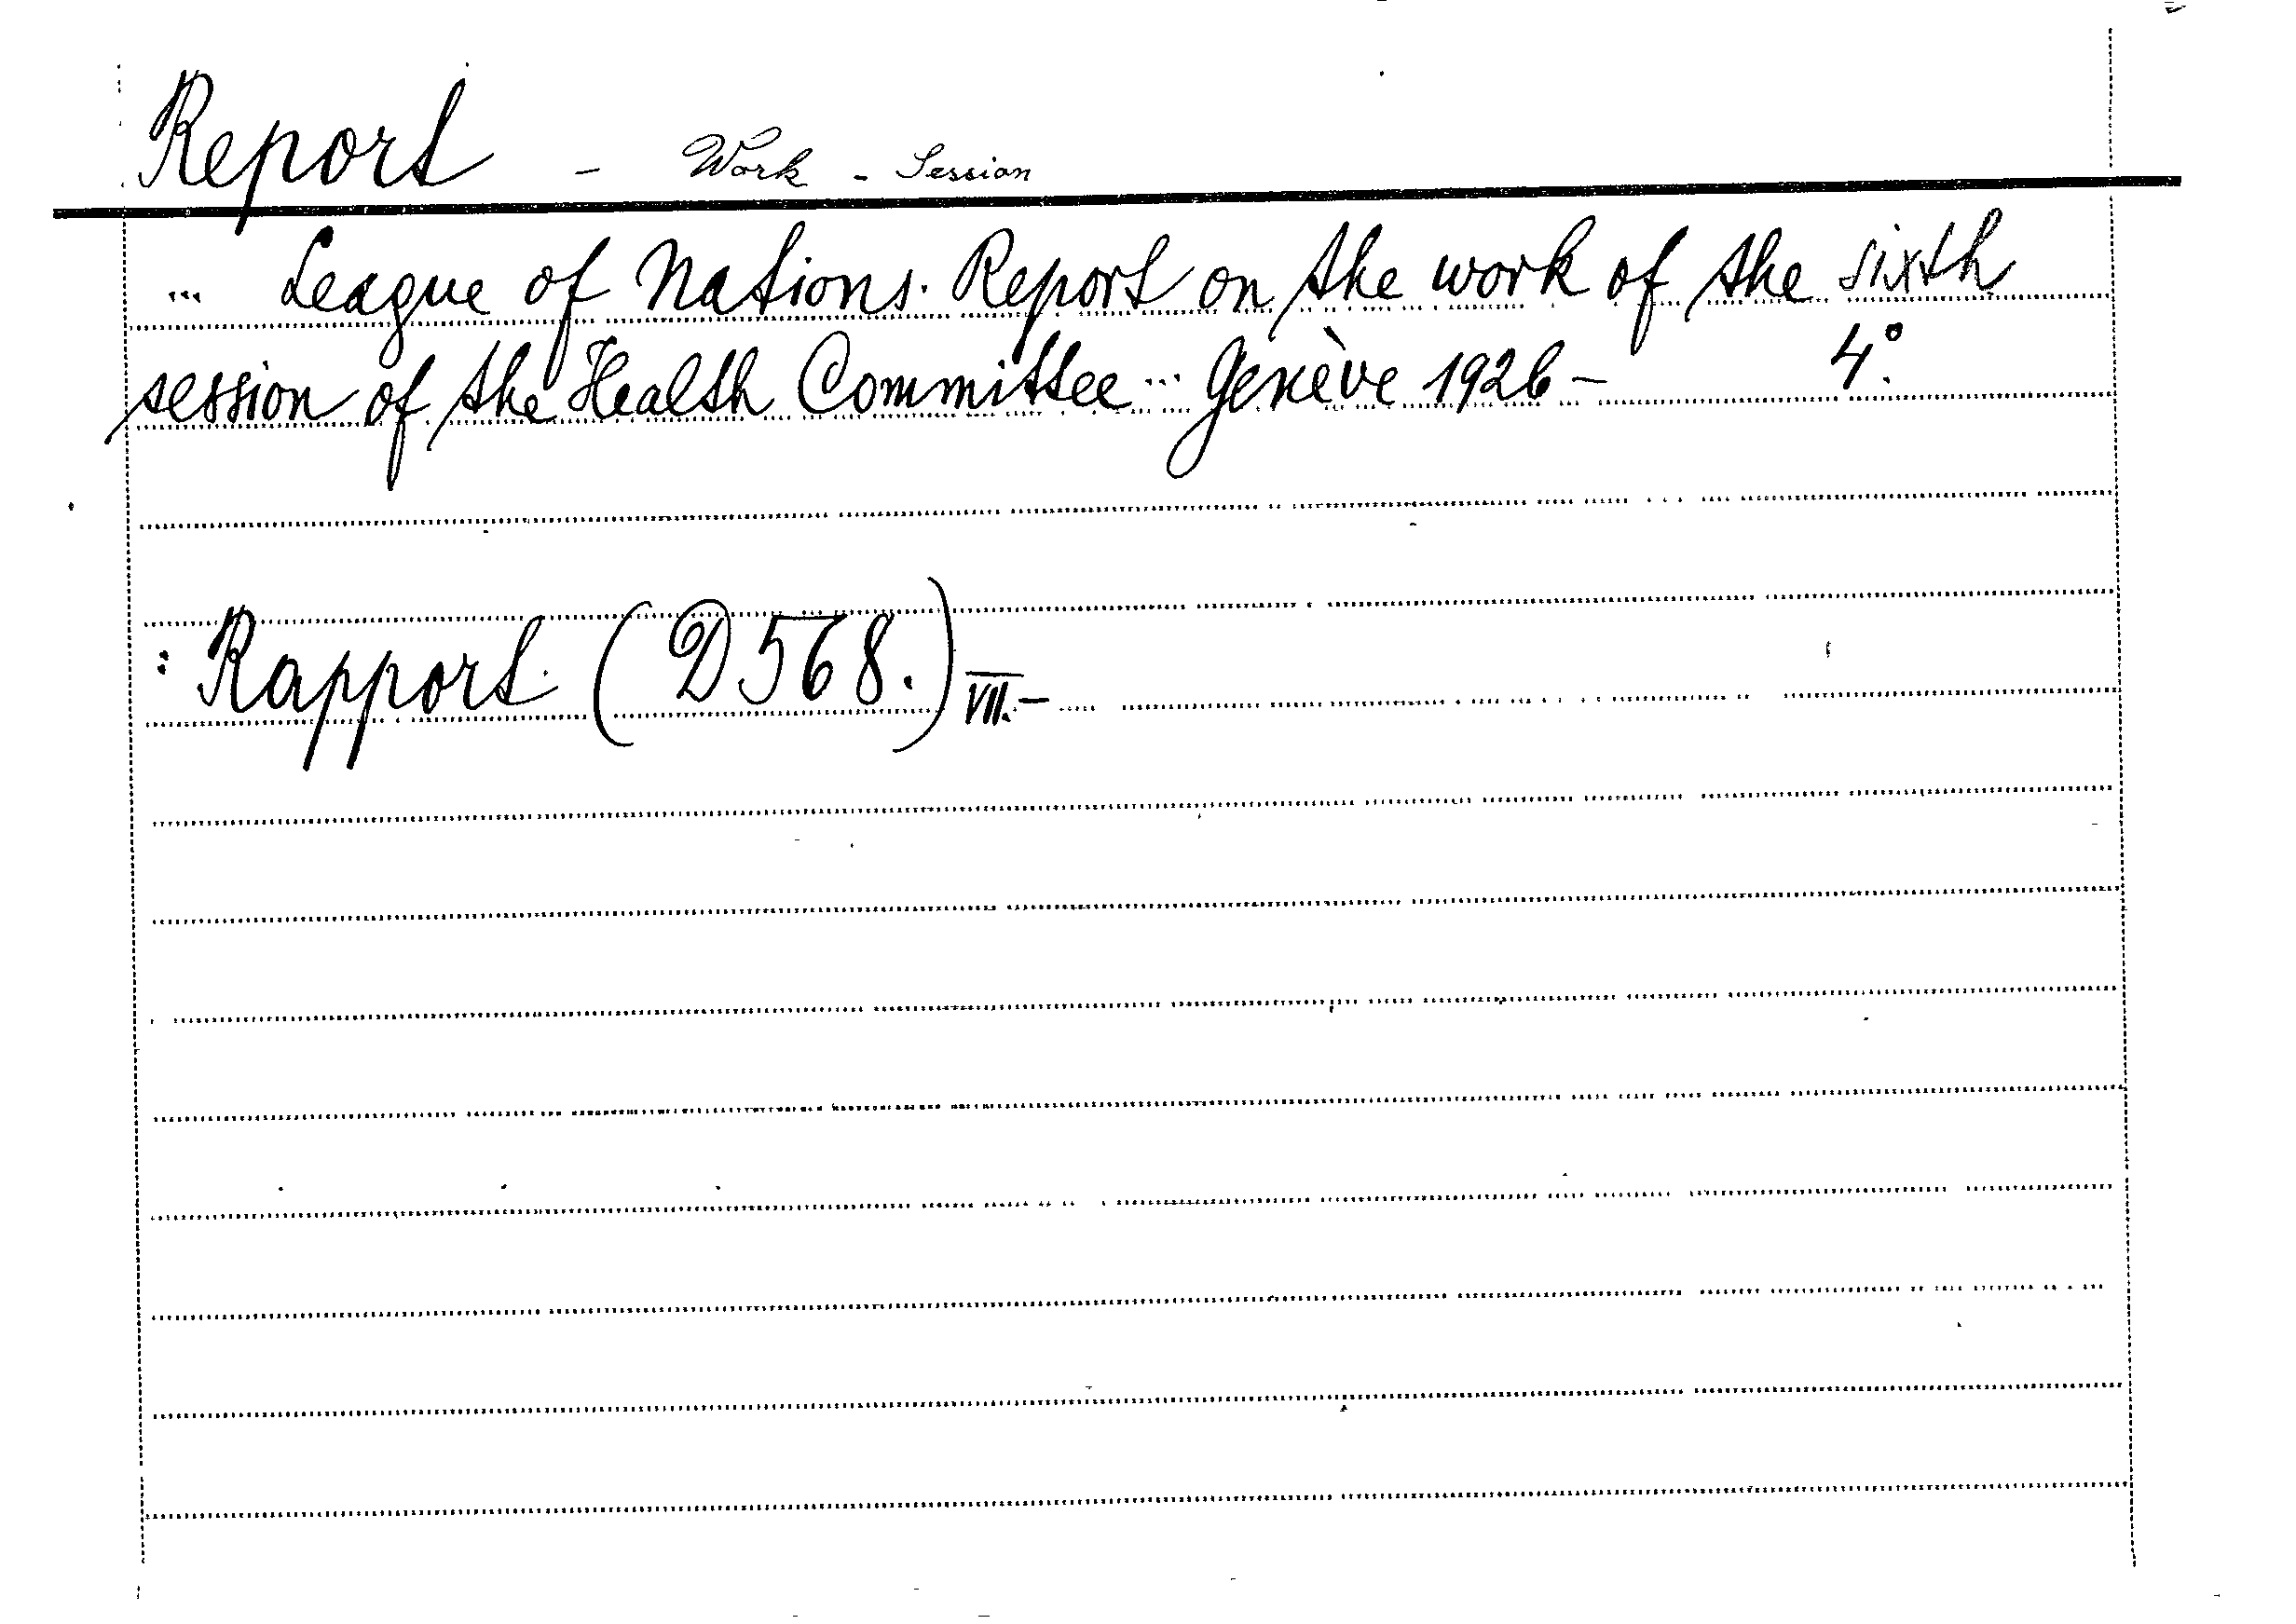 Report - Work - Session
... League of Nations. Report on the work of the sixth
session of the Health Committee ... Genève 1926 - 4°.
: Rapport. (D 568.) VII. -